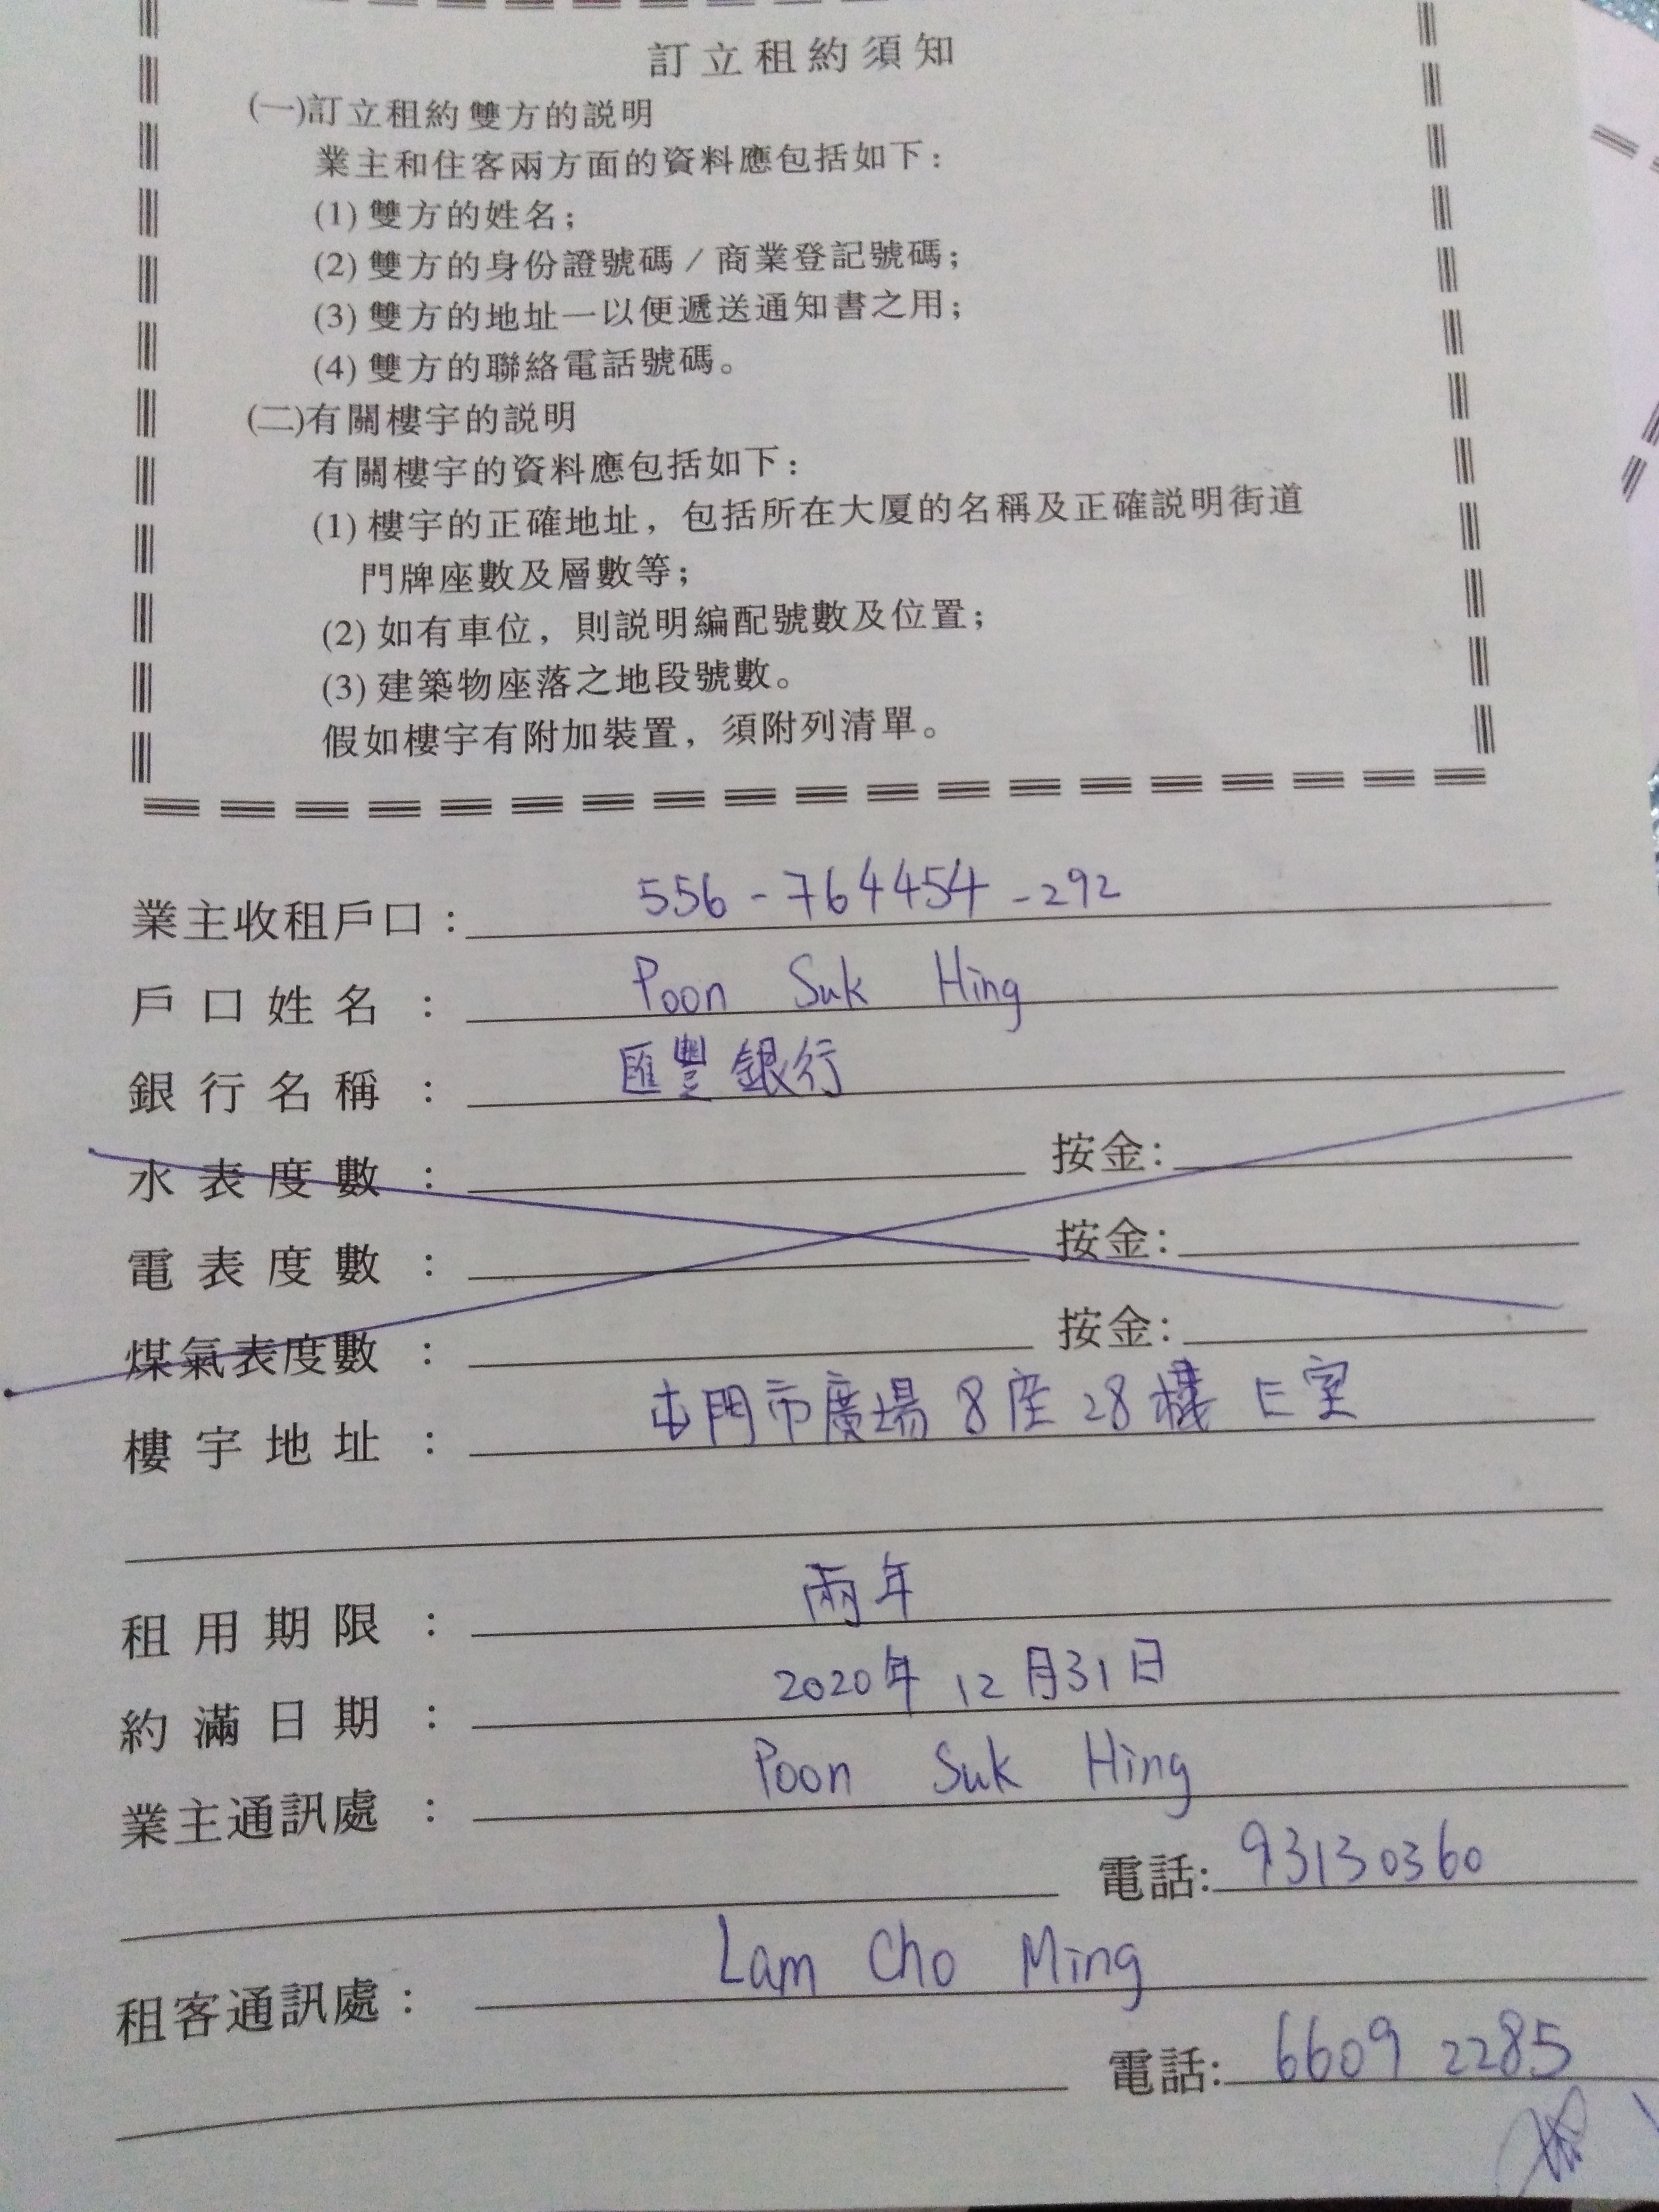 訂立租約須知
(一)訂立租約雙方的説明
業主和住客兩方面的資料應包括如下：
(1) 雙方的姓名；
(2) 雙方的身份證號碼 / 商業登記號碼；
(3) 雙方的地址一以便遞送通知書之用；
(4) 雙方的聯絡電話號碼。
(二)有關樓宇的説明
有關樓宇的資料應包括如下：
(1) 樓宇的正確地址，包括所在大厦的名稱及正確説明街道
門牌座數及層數等；
(2) 如有車位，則説明編配號數及位置；
(3) 建築物座落之地段號數。
假如樓宇有附加裝置，須附列清單。
業主收租戶口： 556-764454-292
戶口姓名： Poon Suk Hing
銀行名稱： 匯豐銀行
水表度數： 按金：
電表度數： 按金：
煤氣表度數： 按金：
樓宇地址： 屯門市廣場 8座 28樓 E室
租用期限： 兩年
約滿日期： 2020年 12月31日
業主通訊處： Poon Suk Hing
電話: 93130360
租客通訊處： Lam Cho Ming
電話: 6609 2285